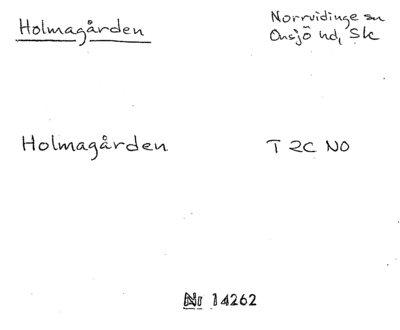 Holmagården
Norrvidinge sn
Onsjö hd, Sk
Holmagården
T 2C NO
Nr 14262